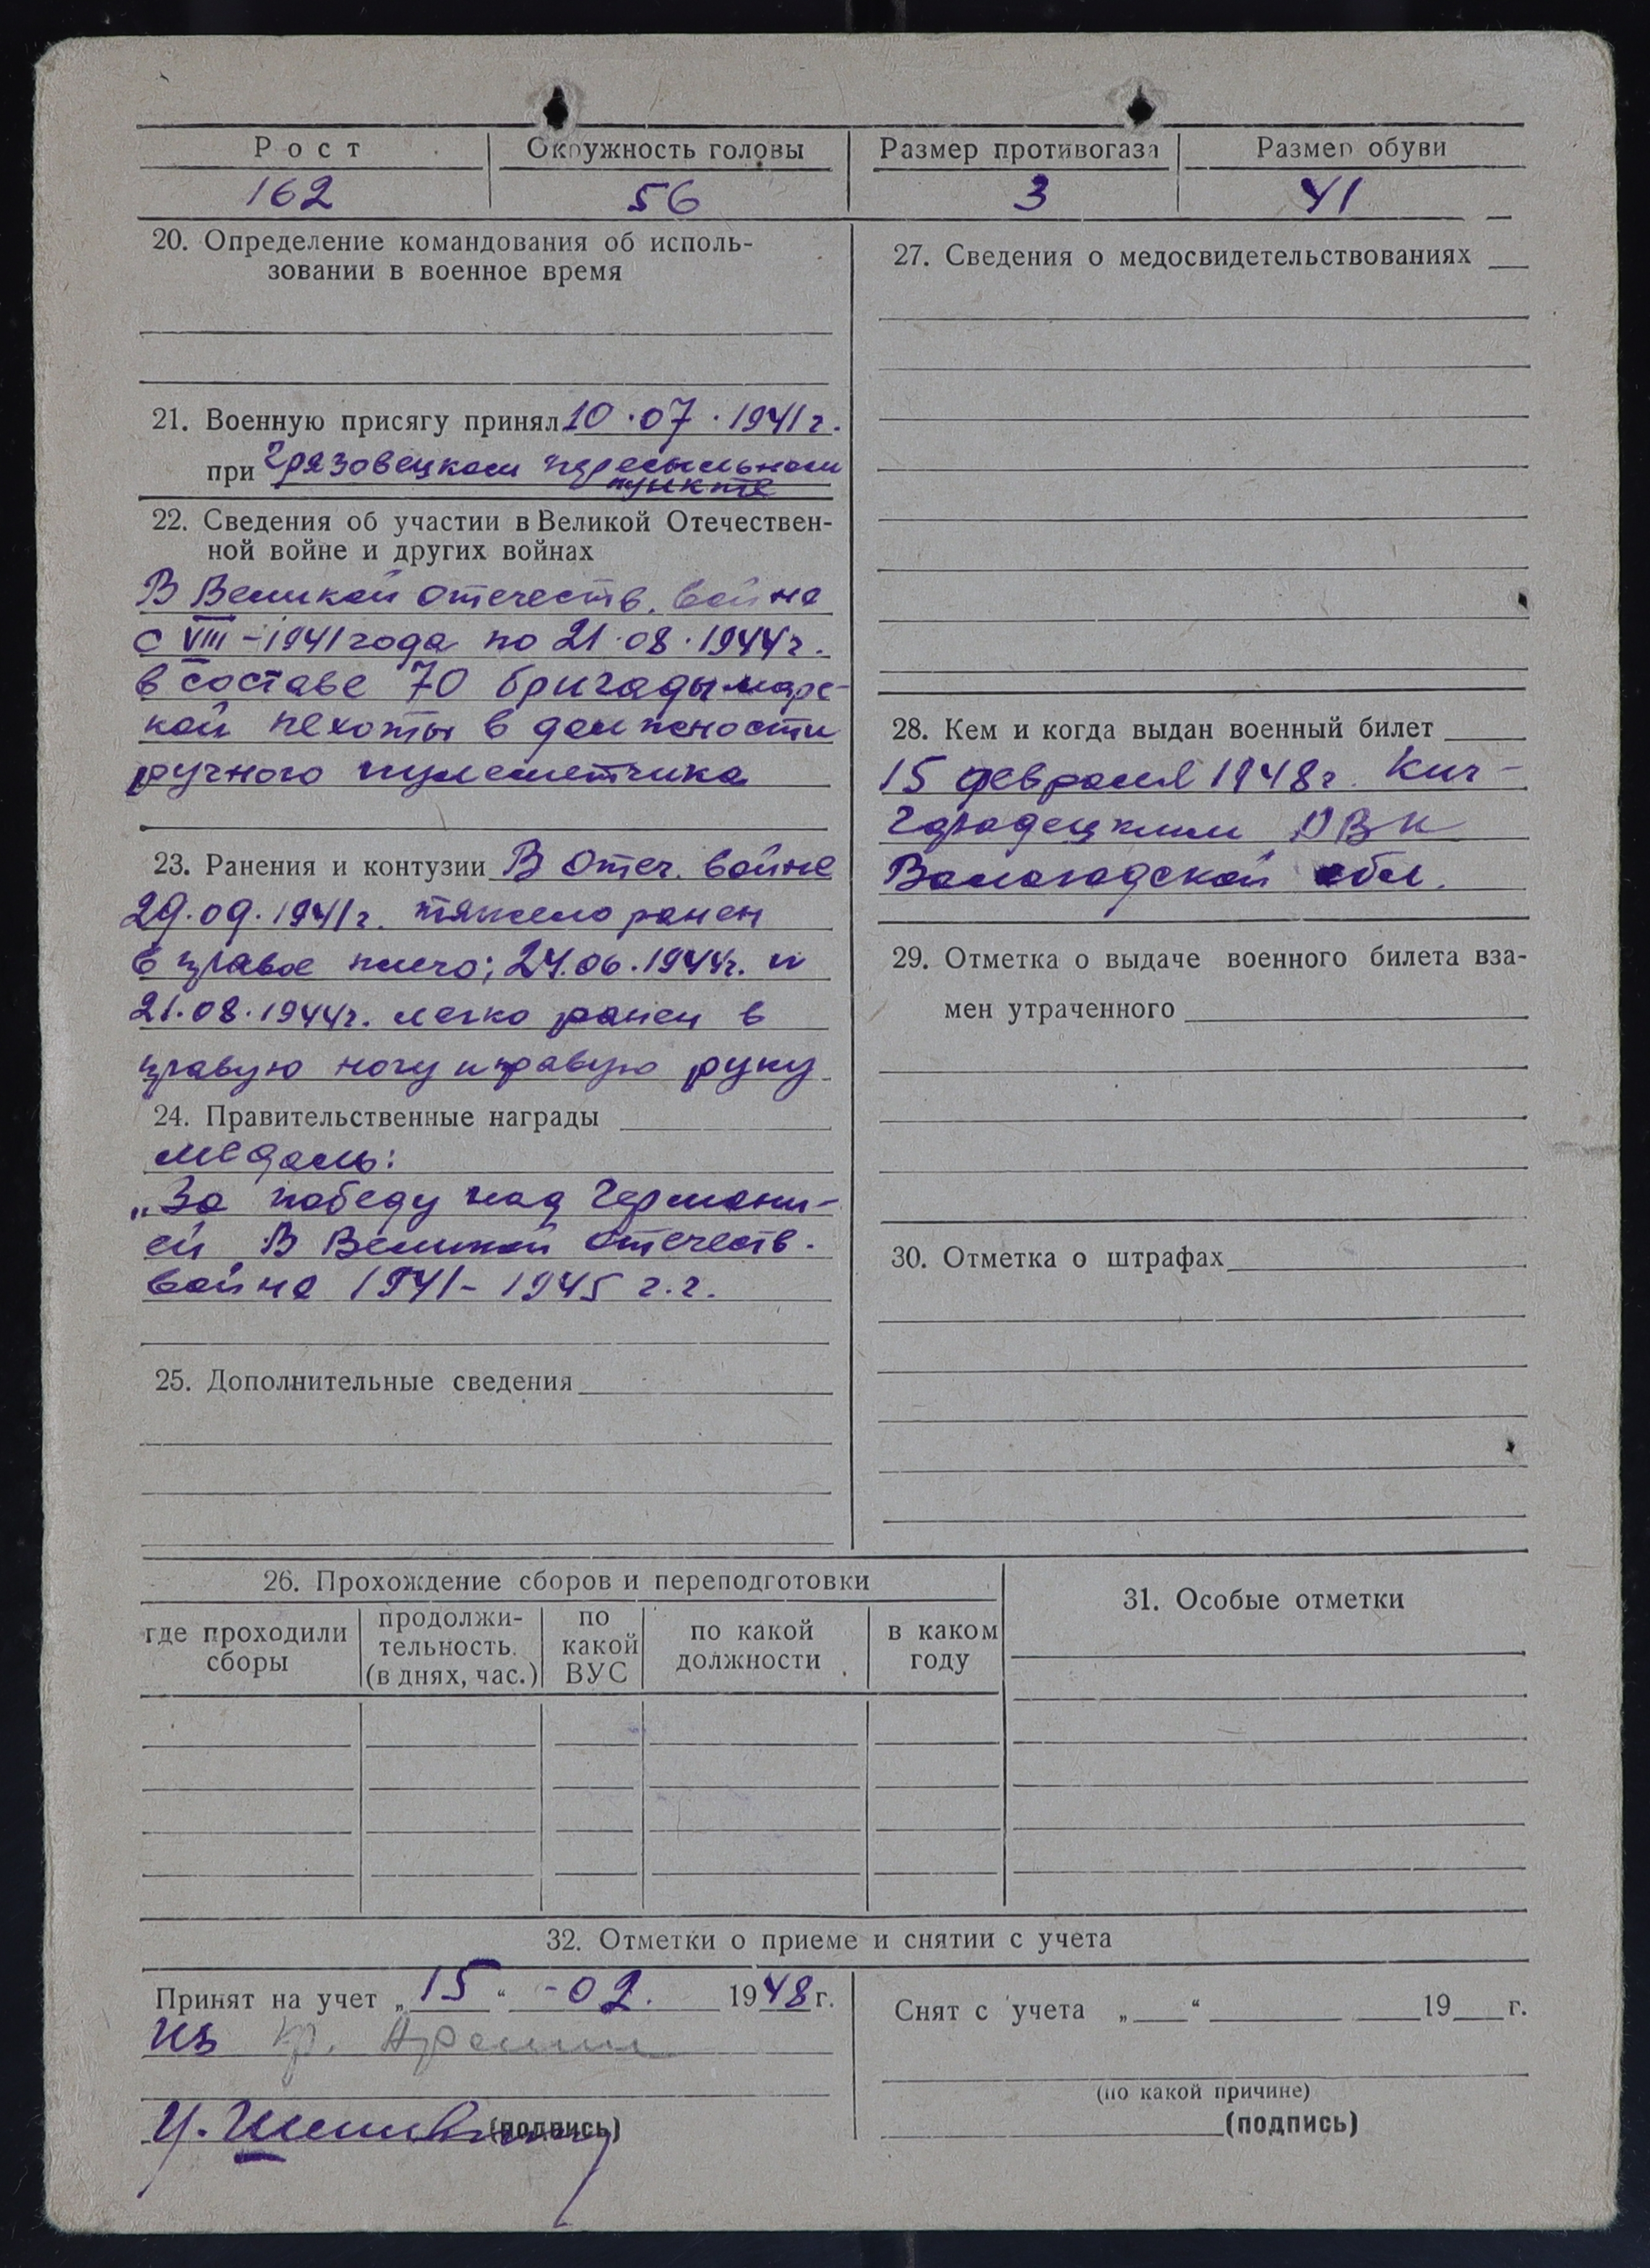 Рост Окружность головы Размер противогаза Размер обуви
162 56 3 41
20. Определение командования об исполь-
зовании в военное время
21. Военную присягу принял 10.07.1941г.
при Грязовецком пересыльном
пункте
22. Сведения об участии в Великой Отечествен-
ной войне и других войнах
В Великой отечеств. войне
с VIII-1941 года по 21.08.1944г.
в составе 70 бригады морс-
кой пехоты в должности
ручного пулеметчика
23. Ранения и контузии В Отеч. войне
29.09.1941г. тяжело ранен
в правое плечо; 24.06.1944г. и
21.08.1944г. легко ранен в
правую ногу и правую руку
24. Правительственные награды
медаль:
„За победу над Германи-
ей В Великой отечеств.
войне 1941-1945 г.г.
25. Дополнительные сведения
27. Сведения о медосвидетельствованиях
28. Кем и когда выдан военный билет
15 февраля 1948г. Кич-
Городецким РВК
Вологодской обл.
29. Отметка о выдаче военного билета вза-
мен утраченного
30. Отметка о штрафах
26. Прохождение сборов и переподготовки
где проходили сборы
продолжи-
тельность
(в днях, час.)
по
какой
ВУС
по какой
должности
в каком
году
31. Особые отметки
32. Отметки о приеме и снятии с учета
Принят на учет „15“ -02. 1948г.
из кр. Армии
(подпись)
Снят с учета „ “ 19 г.
(по какой причине)
(подпись)